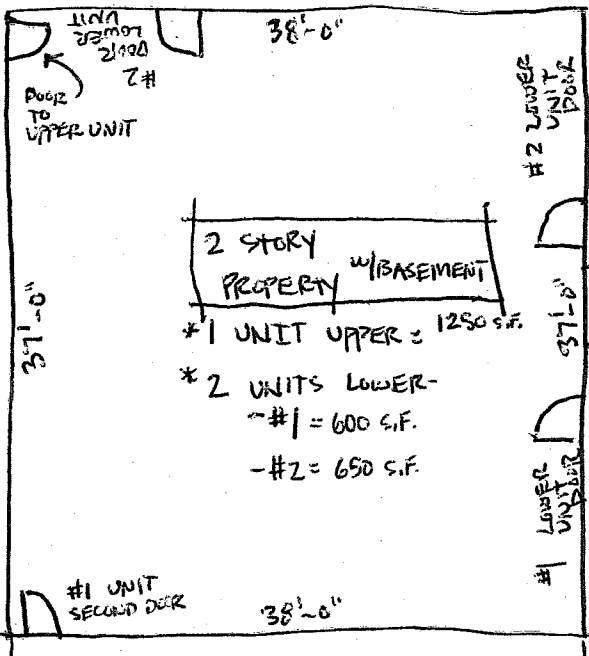 38'-0"
#2
DOOR
LOWER
UNIT
DOOR
TO
UPPER UNIT
#2 LOWER
UNIT
DOOR
2 STORY
PROPERTY w/BASEMENT
37'-0"
37'-0"
*1 UNIT UPPER = 1250 S.F.
* 2 UNITS LOWER-
-#1 = 600 S.F.
-#2 = 650 S.F.
#1 LOWER
UNIT
DOOR
#1 UNIT
SECOND DOOR
38'-0"